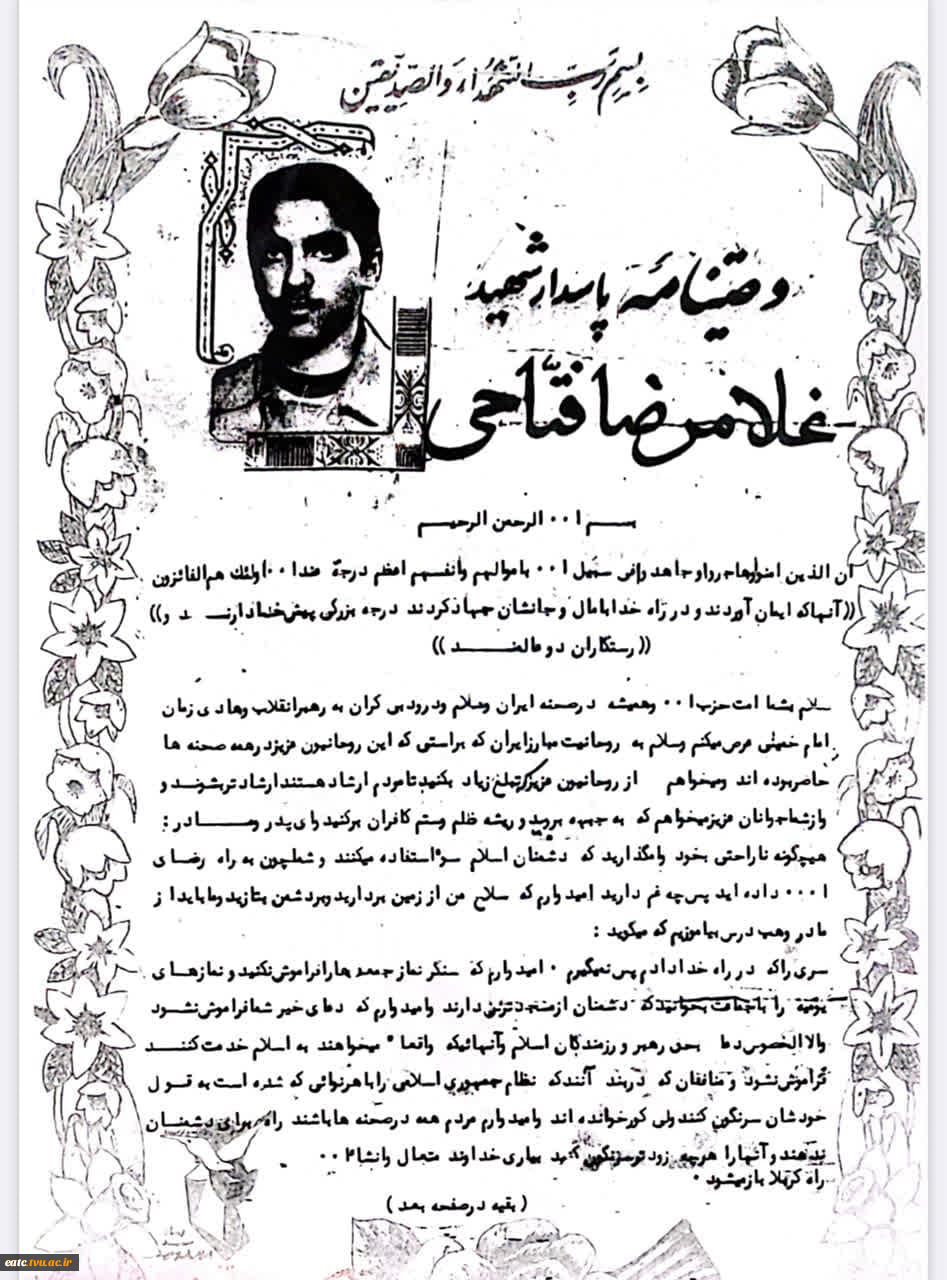 بسم رب الشهداء والصدیقین
وصیتنامه پاسدار شهید
غلامرضا فتاحی
بسم ا۰۰ الرحمن الرحیم
ان الذین امنوا وهاجروا و جاهدوا فی سبیل ا۰۰ باموالهم وانفسهم اعظم درجة عندا۰۰ اولئك هم الفائزون
((آنها که ایمان آوردند و در راه خدا با مال و جانشان جهاد کردند درجه بزرگی پیش خدا دارند و))
((رستکاران دو عالمند))
سلام بشما امت حزب ا۰۰ وهمیشه در صحنه ایران وسلام ودرود بی کران به رهبر انقلاب وهادی زمان
امام خمینی عرض میکنم وسلام به روحانیت مبارز ایران که براستی که این روحانیون عزیز در همه صحنه ها
حاضر بوده اند ومیخواهم از روحانیون عزیز که تبلیغ زیاد بکنید تا مردم ارشاد هستند ارشاد تر بشوند و
واز شما جوانان عزیز میخواهم که به جبهه بروید و ریشه ظلم وستم کافران برکنید وای پدر ومادر :
هیچگونه ناراحتی بخود وامگذارید که دشمنان اسلام سوء استفاده میکنند و شما چون به راه رضای
ا۰۰۰ داده اید پس چه غم دارید امیدوارم که سلاح من از زمین بردارید وبر دشمن بتازید وما باید از
مادر وهب درس بیاموزیم که میگوید :
سری را که در راه خدا دادم پس نمیگیرم ۰ امیدوارم که سنگر نماز جمعه ها را فراموش نکنید و نمازهای
یومیه را با جماعت بخوانید که دشمنان از مسجد ترس دارند وامیدوارم که دعای خیر شما فراموش نشود
والا الخصوص دعا بحق رهبر و رزمندگان اسلام وآنهائیکه واقعا" میخواهند به اسلام خدمت کنند
فراموش نشود و منافقان که دربند آنند که نظام جمهوری اسلامی را با هر نوائی که شده است به قول
خودشان سرنگون کنند ولی کور خوانده اند وامیدوارم مردم همه در صحنه ها باشند راه برای دشمنان
ندهند و آنها را هر چه زودتر سرنگون کنید بیاری خداوند متعال وانشا۲۰۰
راه کربلا باز میشود ۰
(بقیه در صفحه بعد)
eatc.tvu.ac.ir